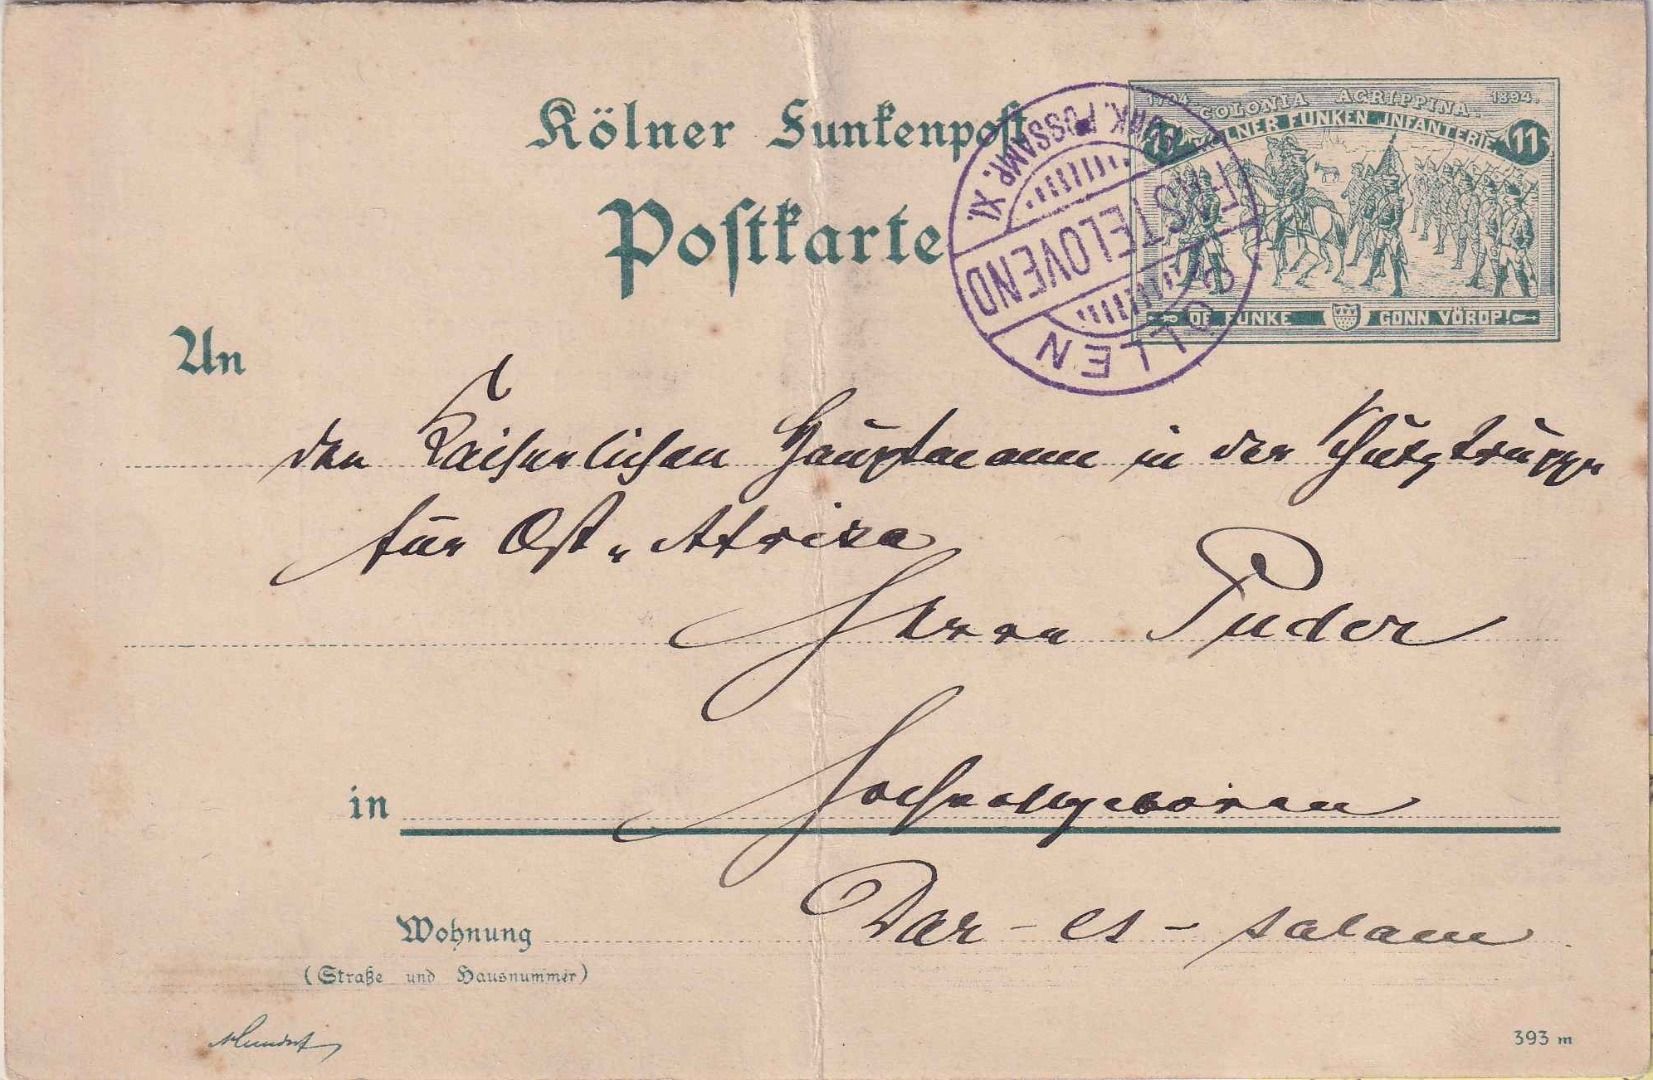 Kölner Funkenpost
Postkarte
1794. COLONIA AGRIPPINA. 1894.
11 KÖLNER FUNKEN JNFANTERIE 11
OF FUNKE GONN VÖROP!
FASTELOVEND
KÖLLEN
An
den Kaiserlichen Hauptmann in der Schutztruppe
für Ost-Afrika
Herrn Puder
in Hochwohlgeboren
Wohnung Dar-es-salam
(Straße und Hausnummer)
393 m